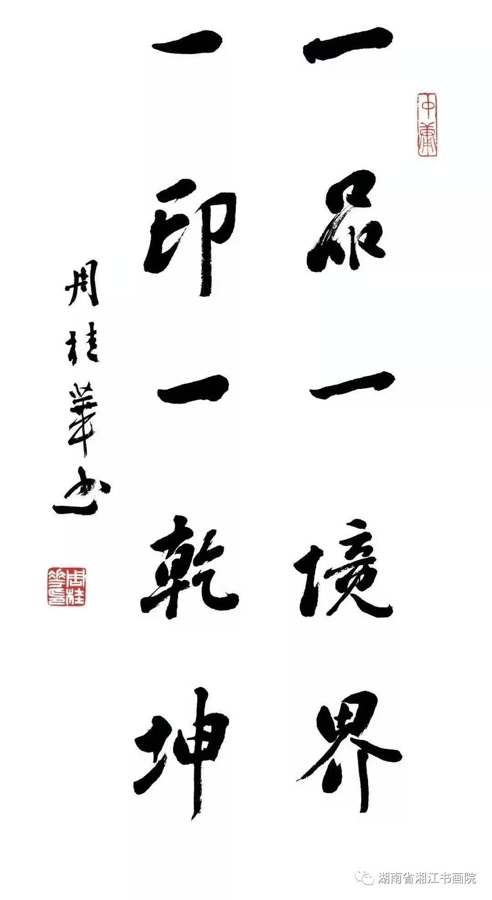 一品一境界
一印一乾坤
周桂華书
周桂華印
湖南省湘江书画院